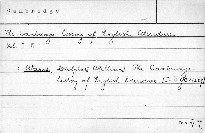 Cambridge
The Cambridge history of English literature.
Vol. I-X
: Ward, Adolphus William: The Cambridge
history of English literature